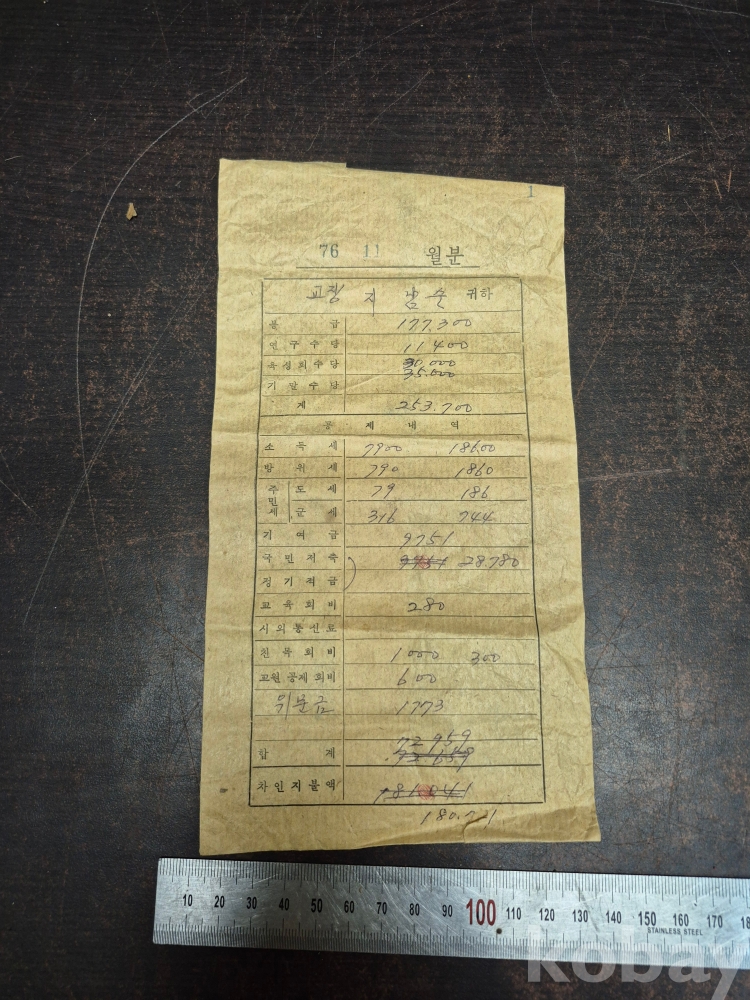 1
76 11 월분
교장 지 남순 귀하
봉급 177.300
연구수당 11400
육성회수당 30.000
기말수당 35.000
계 253.700
공제내역
소득세 7900 18600
방위세 790 1860
주민세 도세 79 186
군세 316 744
기여금 9751
국민저축 9751 28.780
정기적금
교육회비 280
시외통신료
친목회비 1000 300
교원공제회비 600
위문금 1773
72959
합계 72659
차인지불액 181041
180.741
10 20 30 40 50 60 70 80 90 100 110 120 130 140 150 160 170 18
STAINLESS STEEL
kobay